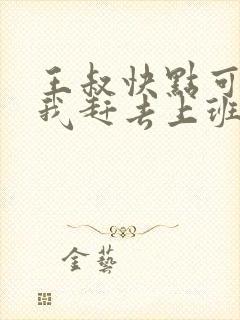 王叔快點可
我赶去上班
金藝